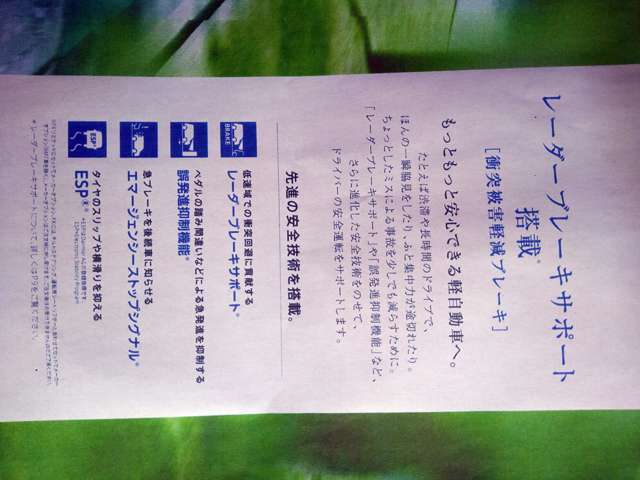 レーダーブレーキサポート
搭載*
[衝突被害軽減ブレーキ]
もっともっと安心できる軽自動車へ。
たとえば渋滞や長時間のドライブで、
ほんの一瞬脇見をしたり、ふと集中力が途切れたり。
ちょっとしたミスによる事故を少しでも減らすために。
「レーダーブレーキサポート」や「誤発進抑制機能」など、
さらに進化した安全技術をのせて、
ドライバーの安全運転をサポートします。
先進の安全技術を搭載。
BRAKE
低速域での衝突回避に貢献する
レーダーブレーキサポート*
ペダルの踏み間違いなどによる急発進を抑制する
誤発進抑制機能*
急ブレーキを後続車に知らせる
エマージェンシーストップシグナル*
ESP
タイヤのスリップや横滑りを抑える
ESP
＊レーダーブレーキサポートについて、詳しくはP9をご覧ください。